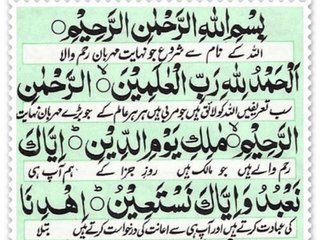 بِسْمِ اللهِ الرَّحْمٰنِ الرَّحِيْمِ
اللہ کے نام سے شروع جو نہایت مہربان رحم والا
اَلْحَمْدُ لِلّٰهِ رَبِّ الْعٰلَمِيْنَ الرَّحْمٰنِ
سب تعریفیں اللہ کو لائق ہیں جو مربی ہیں ہر ہر عالم کے جو بڑے مہربان نہایت
الرَّحِيْمِ مٰلِكِ يَوْمِ الدِّيْنِ اِيَّاكَ
رحم والے ہیں جو مالک ہیں روز جزا کے ہم آپ ہی
نَعْبُدُ وَ اِيَّاكَ نَسْتَعِيْنُ اِهْدِنَا
کی عبادت کرتے ہیں اور آپ ہی سے اعانت کی درخواست کرتے ہیں بتلا